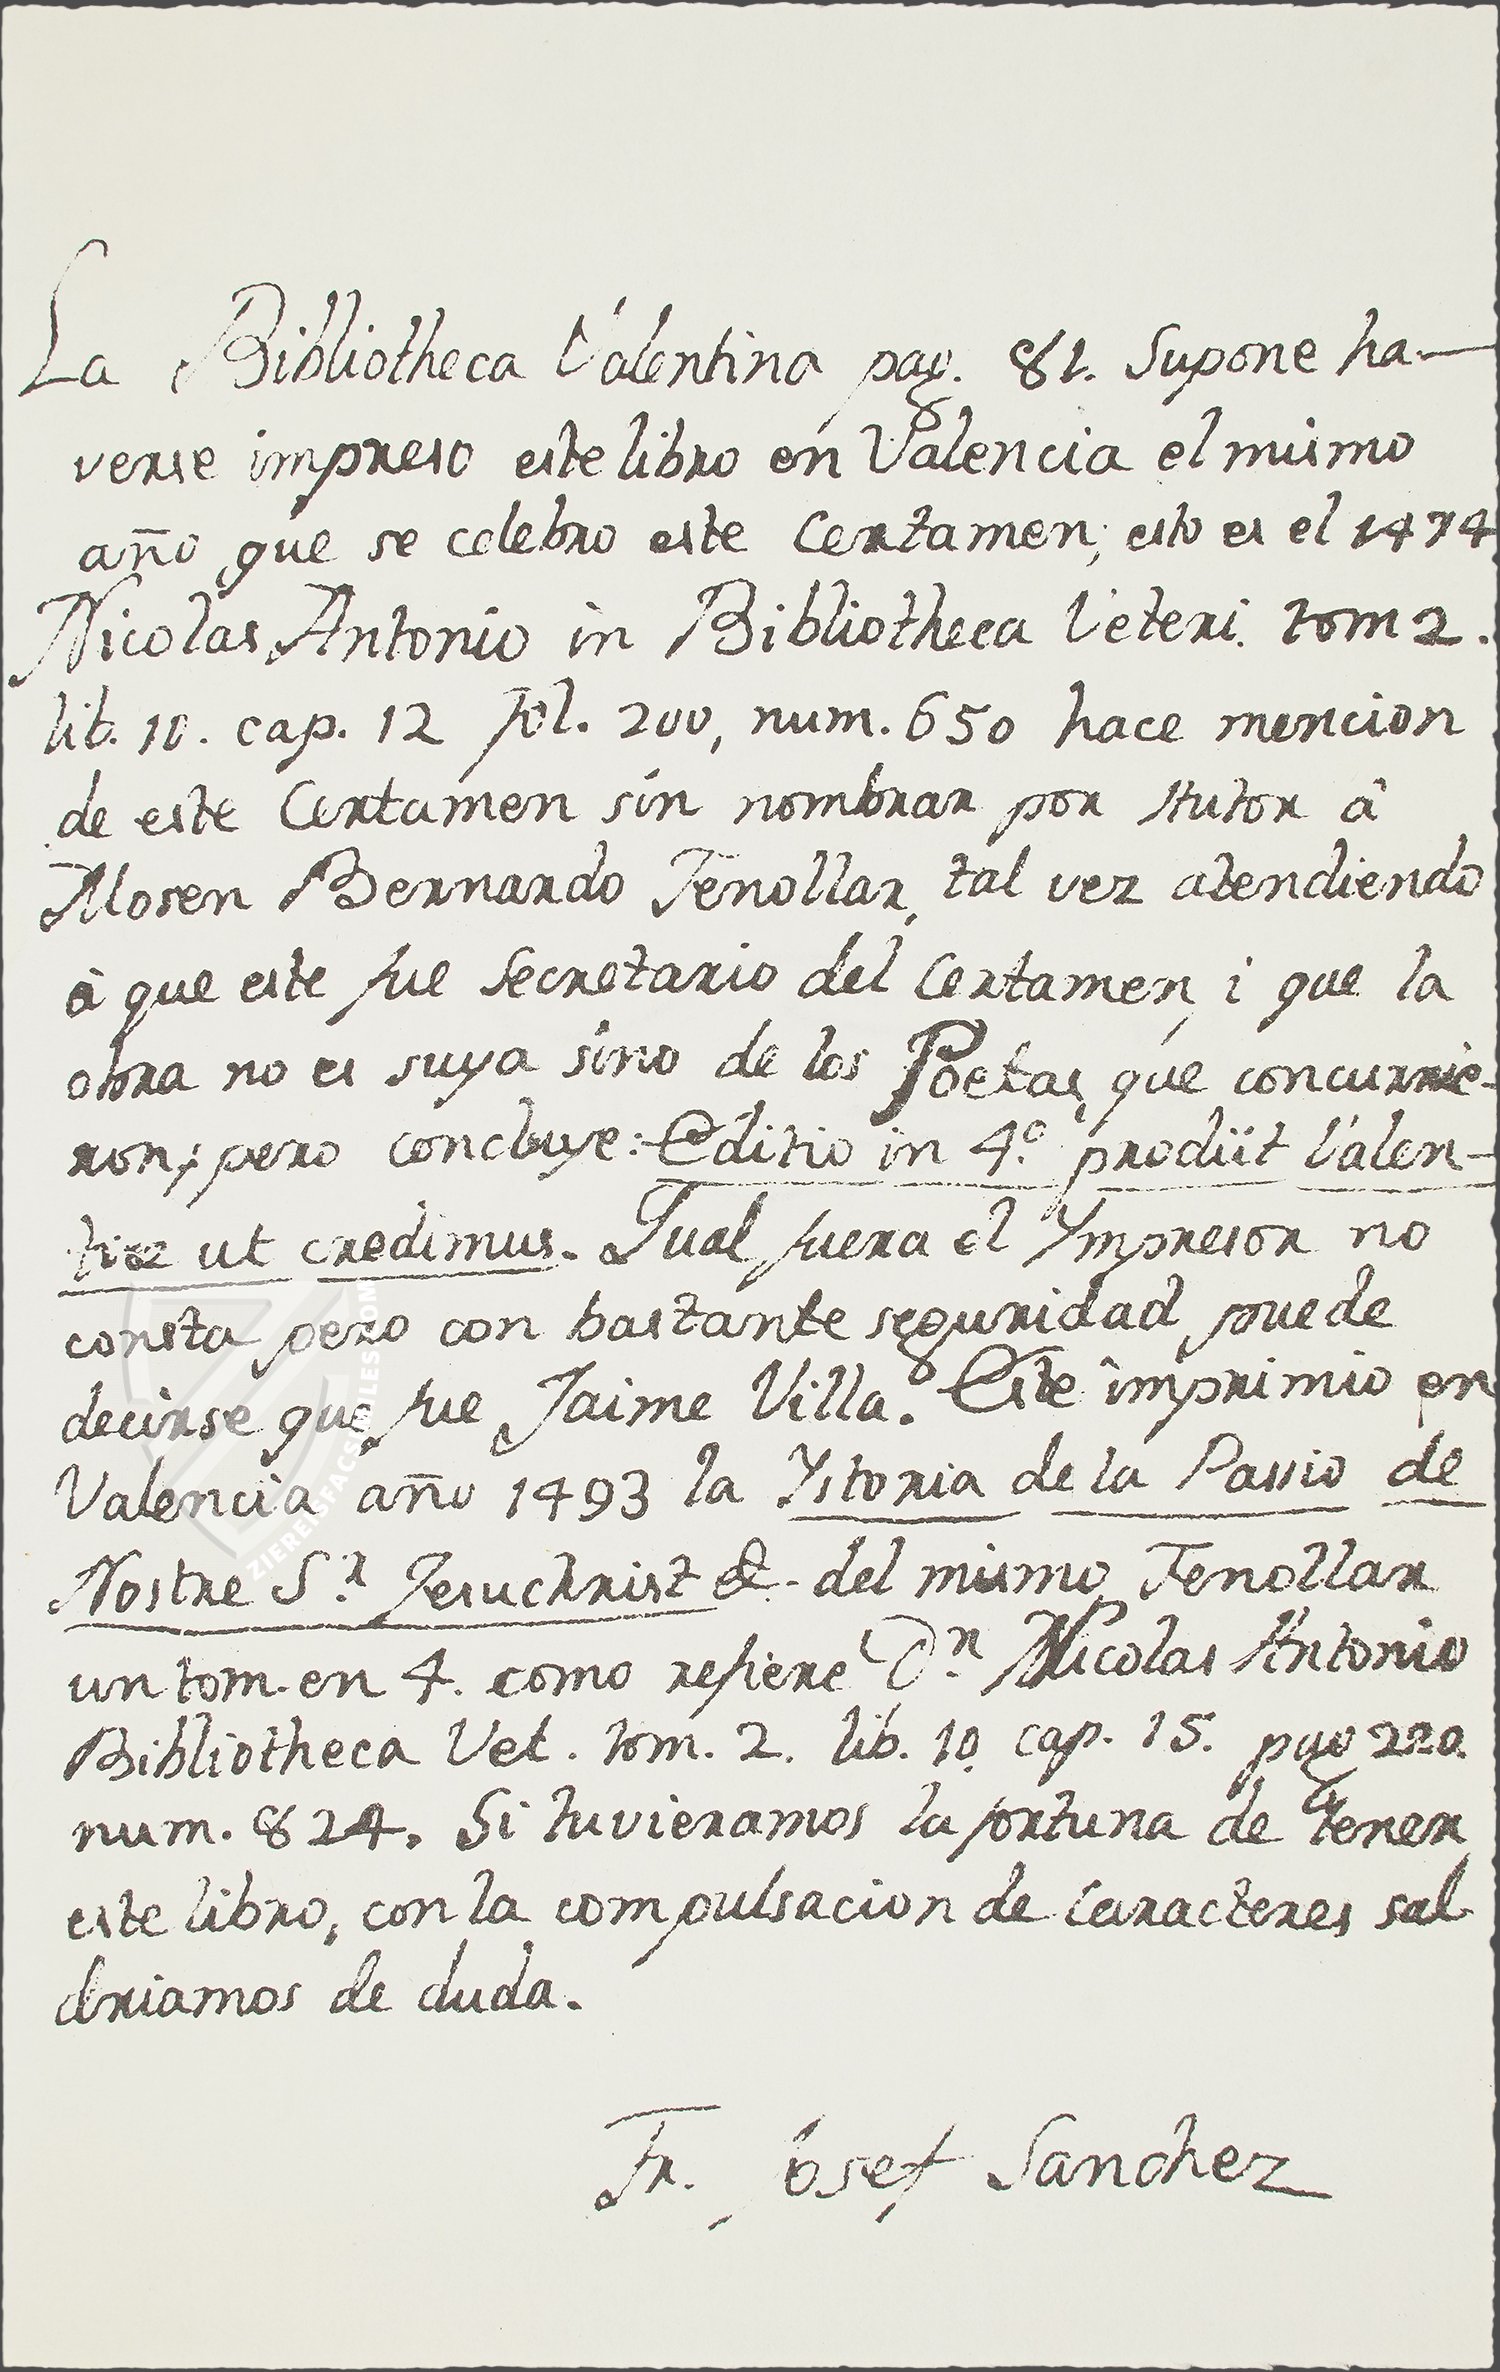 La Bibliotheca Valentina pag. 81. Supone ha-
verse impreso este libro en Valencia el mismo
año, que se celebro este Certamen; esto es el 1474
Nicolas Antonio in Bibliotheca Veteri. tom 2.
lib. 10. cap. 12 fol. 200, num. 650 hace mencion
de este Certamen sin nombrar por Autor â
Mosen Bernardo Fenollar, tal vez atendiendo
â que este fue Secretario del Certamen, i que la
obra no es suya sino de los Poetas, que concurrie-
ron; pero concluye: Editio in 4.º prodiit Valen-
tiae ut credimus. Qual fuera el Ympresor no
consta, pero con bastante seguridad, puede
decirse que fue Jaime Villa. Este imprimio en
Valencia año 1493 la Ystoria de la Passio de
Nostre S.r Jesuchrist &. del mismo Fenollar
un tom. en 4. como refiere D.n Nicolas Antonio
Bibliotheca Vet. tom. 2. lib. 10. cap. 15. pag 220.
num. 824. Si tuvieramos la fortuna de tener
este libro, con la compulsacion de Caracteres sal-
driamos de duda.
Fr. Josef Sanchez
ZIEREIS FACSIMILES.COM